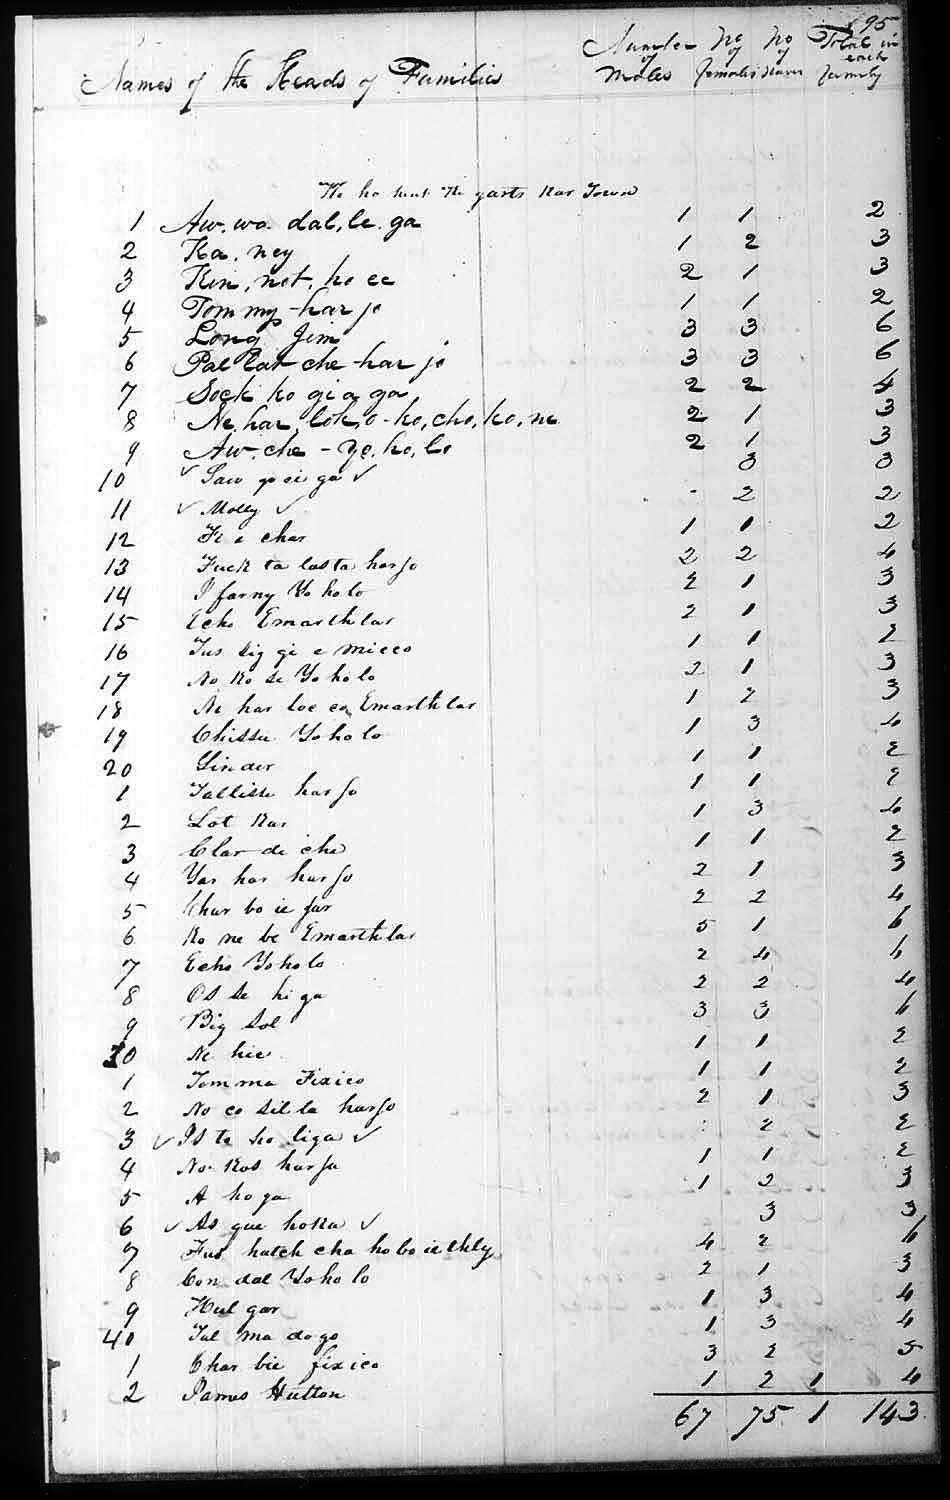 95
Names of the Heads of Families Number of Males No of females No of slaves Total in each family
We ho kent The garts kar Town
1 Aw, wo. dal, le. ga 1 1 2
2 Ka, ney 1 2 3
3 Kin, not, ho ee 2 1 3
4 Tommy-har jo 1 1 2
5 Long Jim 3 3 6
6 Pal lat che-har jo 3 3 6
7 Sock ko gi a ga 2 2 4
8 Ne, har, lok, o-ko, cho, ko, ne 2 1 3
9 Aw, che-Yo, ho, lo 2 1 3
10 ✓ Saw go ei ga ✓ 3 3
11 ✓ Molly ✓ - 2 2
12 Fi e char 1 1 2
13 Fuck ta lusta harjo 2 2 4
14 I farny Yo ho lo 2 1 3
15 Echo Emarthlar 2 1 3
16 Tus sig gi e micco 1 1 2
17 No ko se Yo ho lo 2 1 3
18 Ne har loc co Emarthlar 1 2 3
19 Chissee Yo ho lo 1 3 4
20 Ginder 1 1 2
1 Tallisse harjo 1 1 2
2 Lot kar 1 3 4
3 Clar de che 1 1 2
4 Yar har harjo 2 1 3
5 Char bo ie jar 2 2 4
6 Ko ne be Emarthlar 5 1 6
7 Echo Yo ho lo 2 4 6
8 Os se hi ga 2 2 4
9 Big Sol 3 3 6
30 Ne hie 1 1 2
1 Tomma Fixico 1 1 2
2 No co sil la harjo 2 1 3
3 ✓ Is te ho liga ✓ 2 2
4 No. Kos harjo 1 1 2
5 A ho ga 1 2 3
6 ✓ As gue hoka ✓ 3 3
7 Fus hatch cha ho bo ie thly 4 2 6
8 Con dal Yo ho lo 2 1 3
9 Hul gar 1 3 4
40 Tal ma do go 1 3 4
1 Char bie fixico 3 2 5
2 James Hutton 1 2 1 4
67 75 1 143